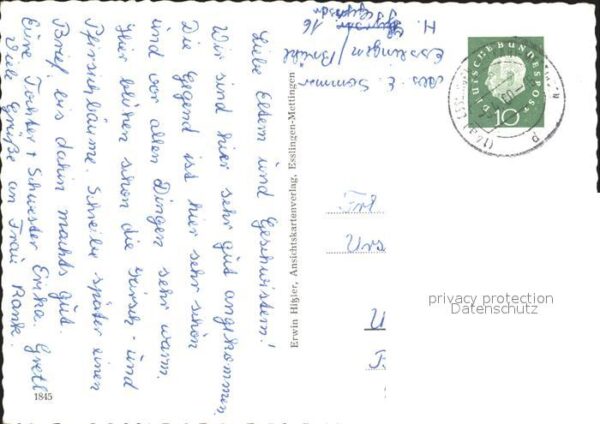 Liebe Eltern und Geschwistern!
Wir sind hier sehr gut angekommen.
Die Gegend ist hier sehr schön
und vor allen Dingen sehr warm.
Hier blühen schon die Kirsch- und
Pfirsichbäume. Schreibe später einen
Brief, bis dahin machts gut.
Eure Tochter + Schwester Erika. Gretl
Viele Grüße an Frau Ranke.
1845
Erwin Hißler, Ansichtskartenverlag, Esslingen-Mettingen
Abs. E. Sommer
Esslingen/Brühl
16
DEUTSCHE BUNDESPOST
10
Urs
privacy protection
Datenschutz